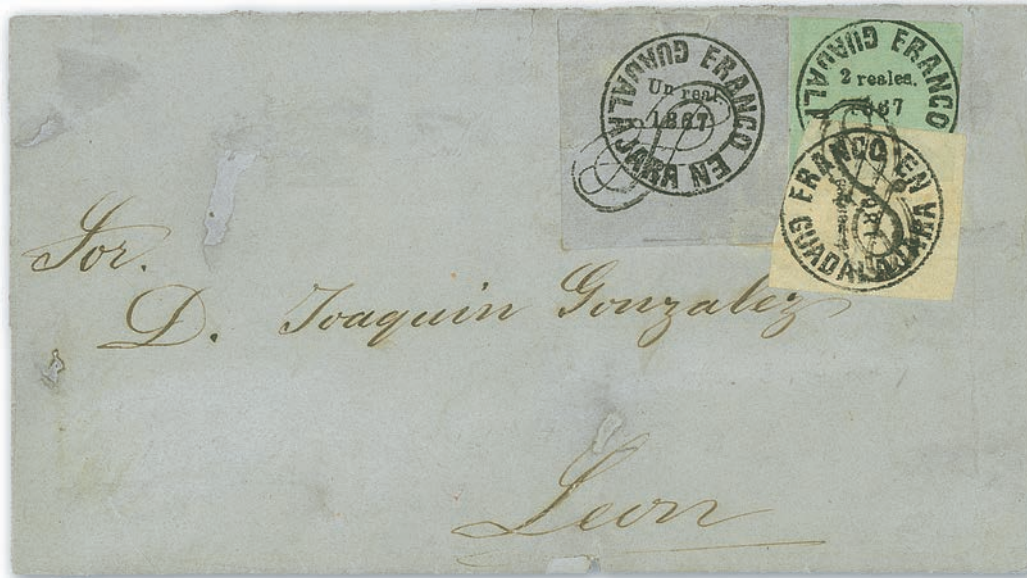 FRANCO EN GUADALAJARA
Un real.
1867
FRANCO EN GUADALA
2 reales.
1867
FRANCO EN GUADALAJARA
Sor.
D. Joaquin Gonzalez
Leon